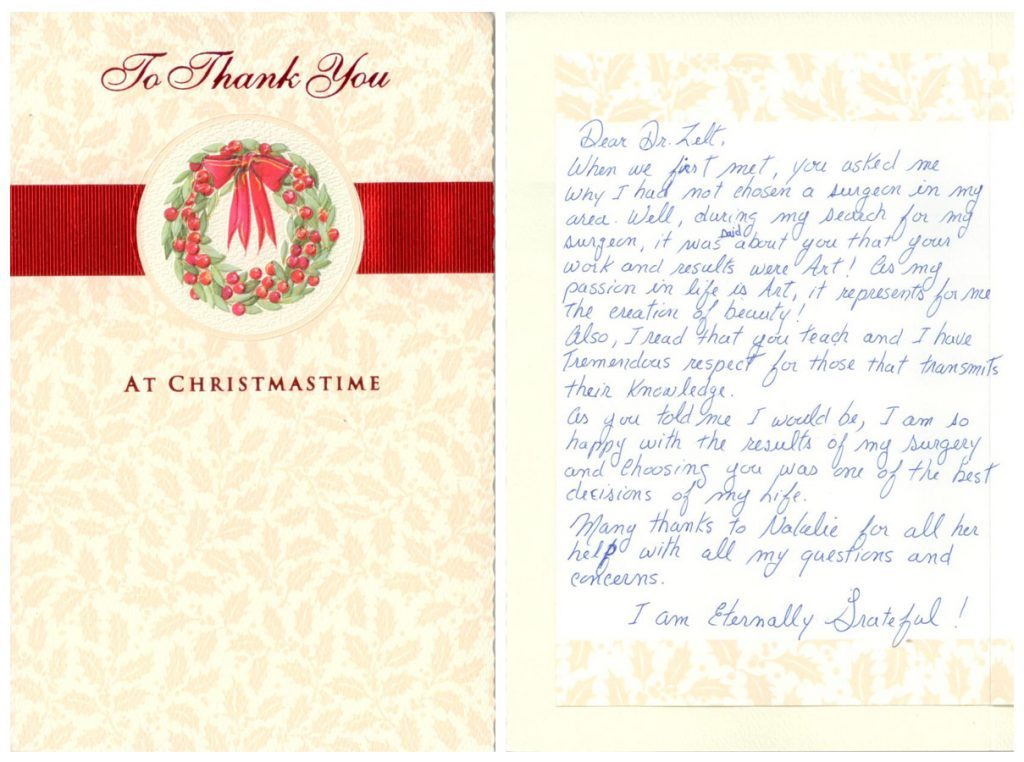 To Thank You
AT CHRISTMASTIME
Dear Dr. Zelt,
When we first met, you asked me
why I had not chosen a surgeon in my
area. Well, during my search for my
surgeon, it was said about you that your
work and results were Art! As my
passion in life is Art, it represents for me
the creation of beauty!
Also, I read that you teach and I have
Tremendous respect for those that transmits
their Knowledge.
As you told me I would be, I am so
happy with the results of my surgery
and Choosing you was one of the best
decisions of my Life.
Many thanks to Natalie for all her
help with all my questions and
concerns.
I am Eternally Grateful!